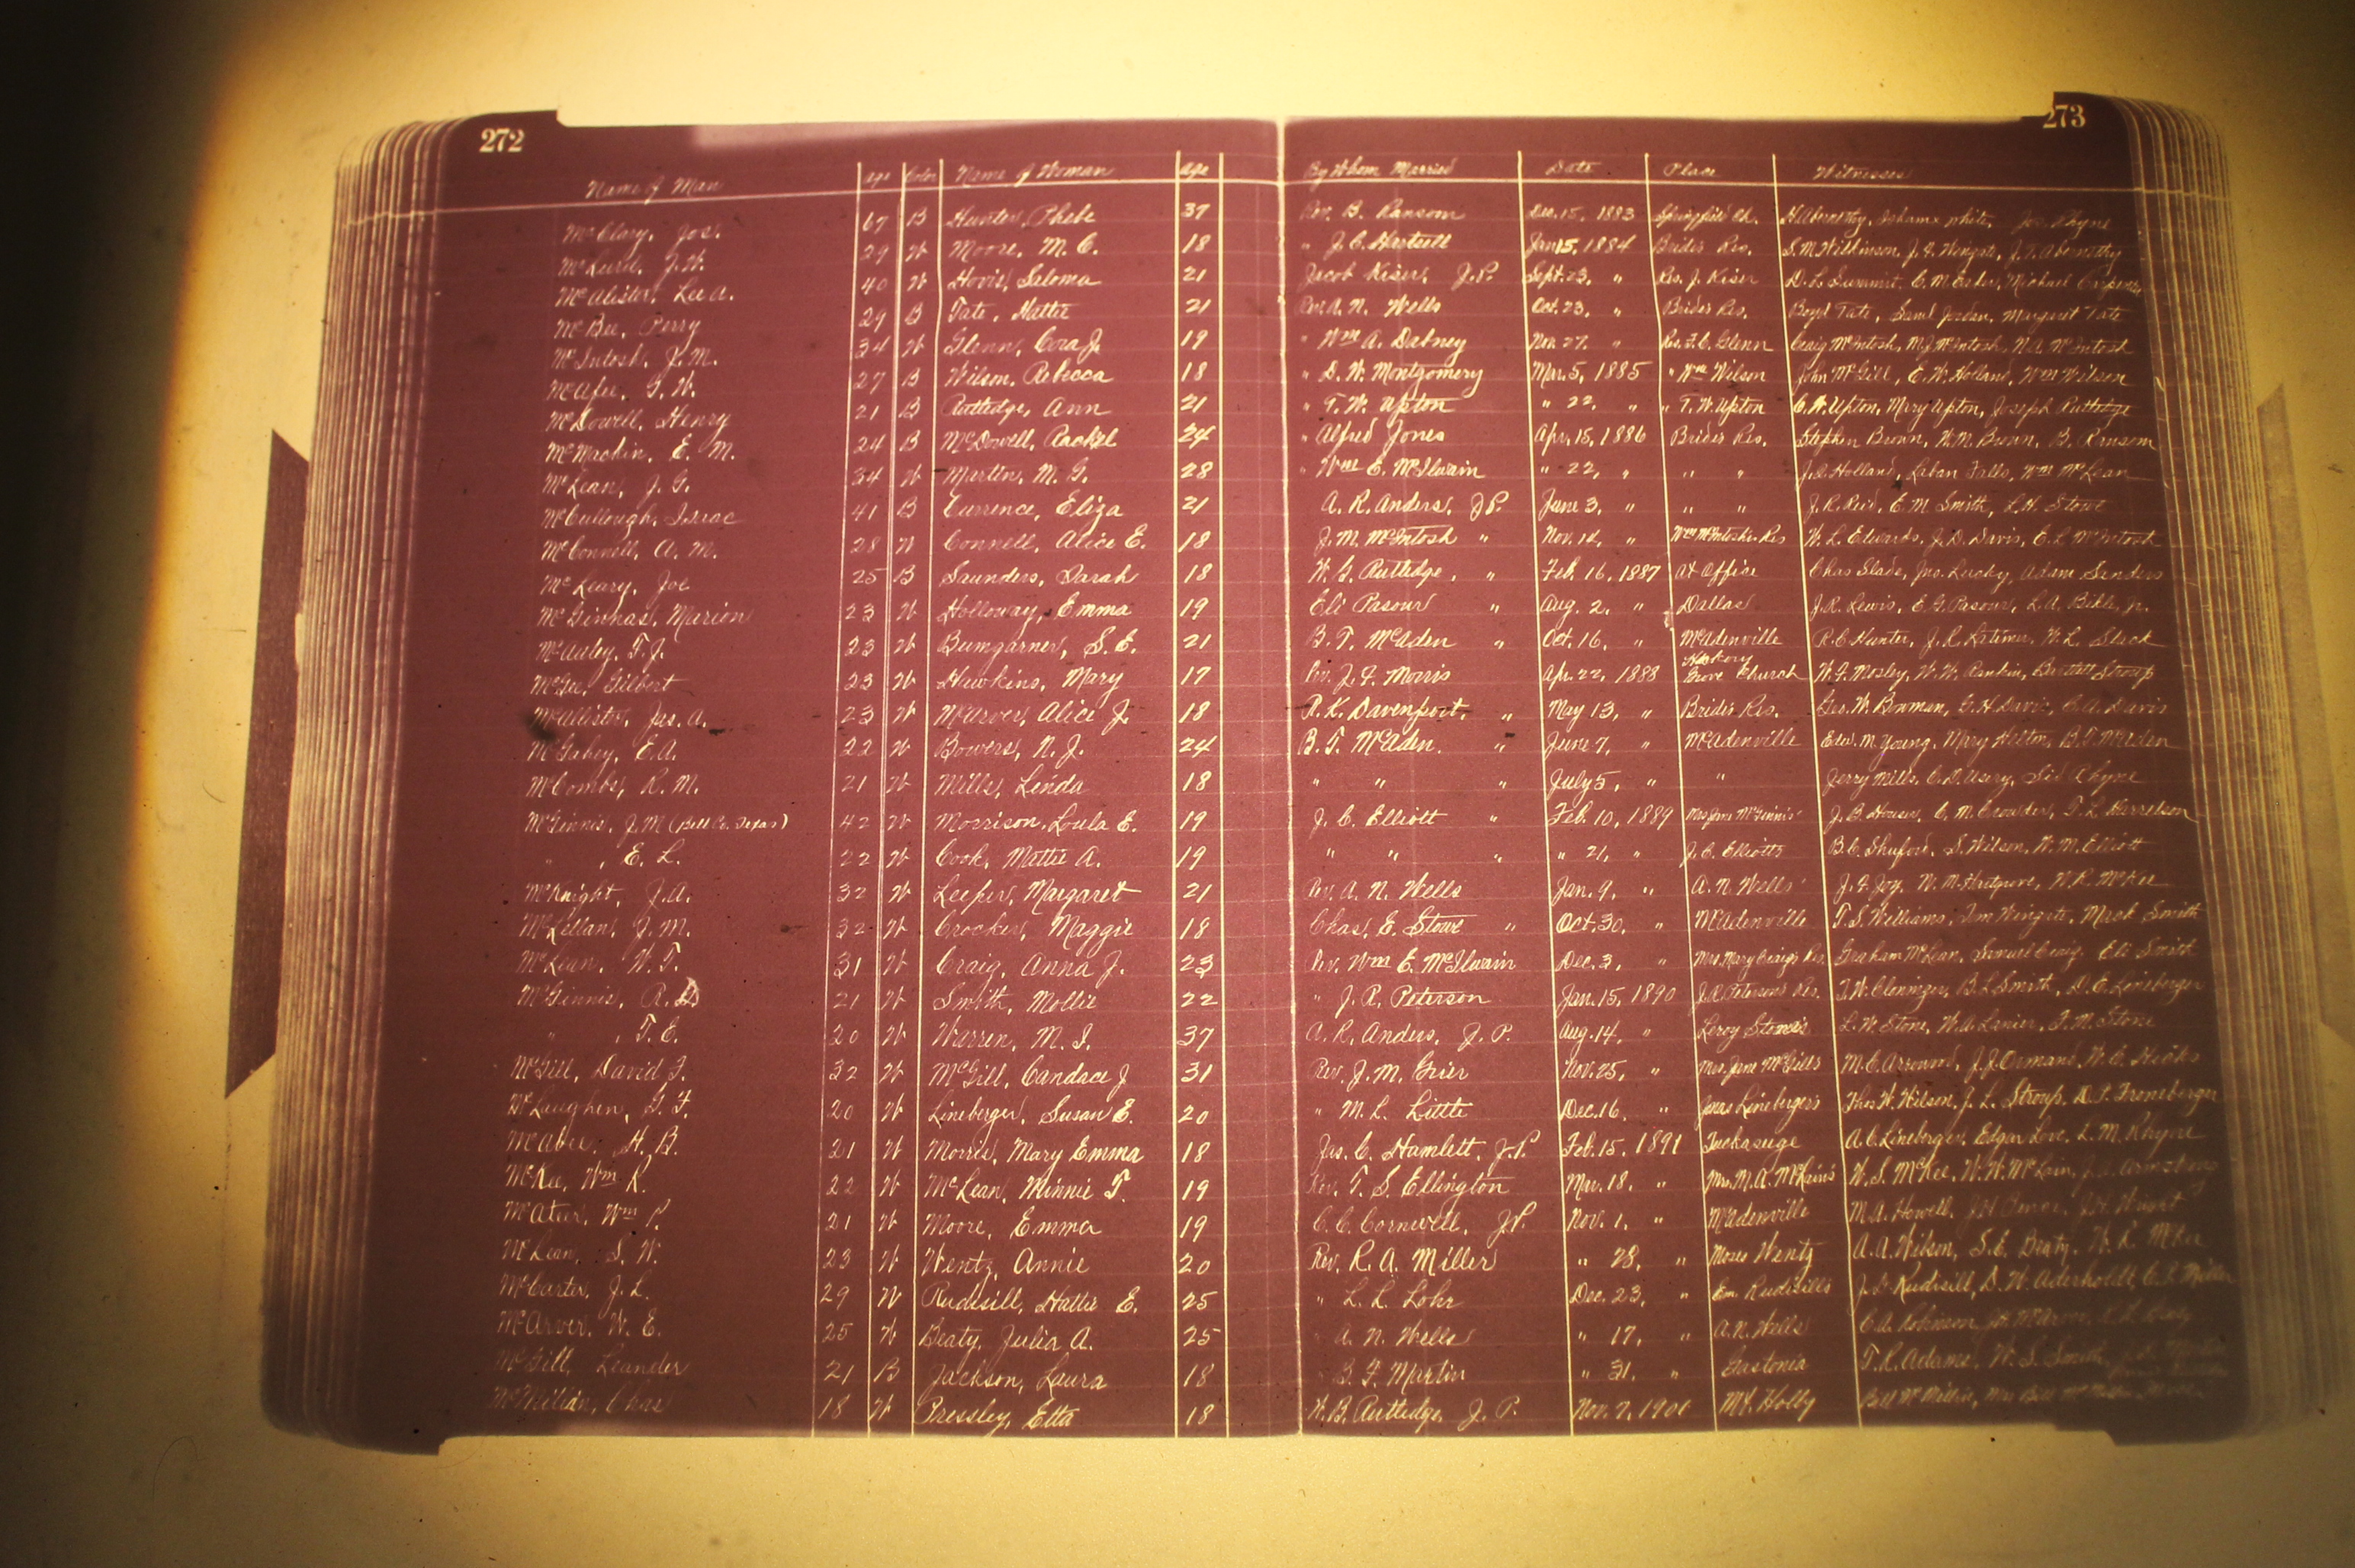 272
273
Name of Man age Color Name of Woman age By Whom Married Date Place Witnesses
McClary, Jos. 67 B Hunter, Phebe 37 Rev. B. Ransom Dec. 15, 1883 Springfield Ch. H Abernathy, Isham White, Jos. Rhyne
McLurd, J. W. 29 W Moore, M. C. 18 " J. C. Hartsell Jan 15, 1884 Brides Res. S. M. Wilkinson, J. F. Wingate, J. F. Abernathy
McAlister, Lee A. 40 W Hovis, Saloma 21 Jacob Kiser, J.P. Sept. 23, " Res. J. Kiser D. L. Summit, E. M. Eaker, Michael Carpenter
McBee, Perry 29 B Tate, Hattie 21 Rev. A. N. Wells Oct. 23, " Brides Res. Boyd Tate, Saml Jordan, Margaret Tate
McIntosh, J. M. 34 W Glenn, Cora J. 19 " Wm A. Dabney Nov. 27, " Res. F. C. Glenn Craig McIntosh, M. J. McIntosh, N. A. McIntosh
McAfee, G. W. 27 B Wilson, Rebecca 18 " D. W. Montgomery Mar. 5, 1885 " Wm Wilson John McGill, E. W. Holland, Wm Wilson
McDowell, Henry 21 B Rutledge, Ann 21 " T. W. Upton " 22, " " T. W. Upton C. A. Upton, Mary Upton, Joseph Rutledge
McMackin, E. M. 24 B McDowell, Rachel 24 " Alfred Jones Apr. 15, 1886 Brides Res. Stephen Brown, W. M. Brown, B. Ransom
McLean, J. G. 34 W Martin, M. G. 28 " Wm E. McIlwain " 22, " " " J. D. Holland, Laban Falls, Wm McLean
McCullough, Isaac 41 B Currence, Eliza 21 A. R. Anders, J.P. June 3, " " " J. R. Reid, E. M. Smith, L. H. Stowe
McConnell, A. M. 28 W Connell, Alice E. 18 J. M. McIntosh " Nov. 14, " Wm McIntosh's Res W. L. Edwards, J. D. Davis, E. L. McIntosh
McLeary, Joe 25 B Saunders, Sarah 18 W. G. Rutledge, " Feb. 16, 1887 At Office Chas Slade, Jno. Lucky, Adam Sanders
McGinnas, Marion 23 W Holloway, Emma 19 Eli Pasour " Aug. 2, " Dallas J. R. Lewis, E. G. Pasour, L. A. Bikle, jr.
McAuley, T. J. 23 W Bumgarner, S. E. 21 B. T. McAden " Oct. 16, " McAdenville R. C. Hunter, J. R. Latimer, W. L. Slack
McGee, Gilbert 23 W Hawkins, Mary 17 Rev. J. F. Morris Apr. 22, 1888 Hickory Grove Church W. F. Mosley, W. W. Rankin, Bartlett Stroup
McAllister, Jas. A. 23 W McArver, Alice J. 18 R. K. Davenport, " May 13, " Brides Res. Geo. W. Bowman, G. H. Davis, C. A. Davis
McGahey, E. A. 22 W Bowers, N. J. 24 B. T. McAden. " June 7, " McAdenville Edw. M. Young, Mary Helton, B. T. McAden
McCombs, R. M. 21 W Mills, Linda 18 " " " July 5, " " Jerry Mills, C. D. Usery, Sid Rhyne
McGinnis, J. M. (Bell Co. Texas) 42 W Morrison, Loula E. 19 J. C. Elliott " Feb. 10, 1889 Mrs Jane McGinnis' J. B. Houser, C. M. Crowder, T. L. Harrelson
" , E. L. 22 W Cook, Mattie A. 19 " " " " 21, " J. C. Elliotts B. C. Shuford, S. Wilson, W. M. Elliott
McKnight, J. A. 32 W Leeper, Margaret 21 Rev. A. N. Wells Jan. 9, " A. N. Wells' J. F. Joy, W. M. Hartgrove, W. R. McKee
McLellan, J. M. 32 W Crocker, Maggie 18 Chas. E. Stowe " Oct. 30, " McAdenville T. S. Williams, Tom Wingate, Mack Smith
McLean, W. T. 31 W Craig, Anna J. 23 Rev. Wm E. McIlwain Dec. 3, " Mrs. Mary Craig's Res. Graham McLean, Samuel Craig, Eli Smith
McGinnis, R. D 21 W Smith, Mollie 22 " J. R. Peterson Jan. 15, 1890 J. R. Peterson's Res. T. W. Cloninger, B. L. Smith, D. E. Lineberger
" , T. E. 20 W Warren, M. I. 37 A. R. Anders, J. P. Aug. 14, " Leroy Stone's L. W. Stone, W. A. Lanier, F. M. Stone
McGill, David F. 32 W McGill, Candace J 31 Rev. J. M. Grier Nov. 25, " Mrs. Jane McGill's M. C. Arrowood, J. J. Ormand, W. C. Hicks
McLaughen, G. F. 20 W Lineberger, Susan E. 20 " M. L. Little Dec. 16, " Jonas Lineberger's Thos W. Wilson, J. L. Stroup, D. P. Froneberger
McAbee, H. B. 21 W Morris, Mary Emma 18 Jas. C. Hamlett, J.P. Feb. 15, 1891 Tuckasuge A. C. Lineberger, Edgar Love, L. M. Rhyne
McKee, Wm R. 22 W McLean, Minnie T. 19 Rev. T. S. Ellington Mar. 18, " Mrs. M. A. McLain's W. S. McKee, W. W. McLain, J. A. Armstrong
McAteer, Wm P. 21 W Moore, Emma 19 C. C. Cornwell, J.P. Nov. 1, " McAdenville M. A. Howell, Wright
McLean, S. W. 23 W Wentz, Annie 20 Rev. R. A. Miller " 28, " Moses Wentz A. A. Wilson, S. E. Beaty, W. R. McKee
McCarter, J. L. 29 W Rudisill, Hattie E. 25 " L. L. Lohr Dec. 23, " Em. Rudisill's J. D. Rudisill, D. W. Aderholdt, C. E. Miller
McArver, W. E. 25 W Beaty, Julia A. 25 " A. N. Wells " 17, " A. N. Wells' C. A. Johnson
McGill, Leander 21 B Jackson, Laura 18 " B. F. Martin " 31, " Gastonia T. R. Adams, W. S. Smith
McMillan, Chas 18 W Pressley, Etta 18 W. B. Rutledge, J. P. Nov. 7, 1901 Mt. Holly Bill McMillan, Mrs Bill McMillan